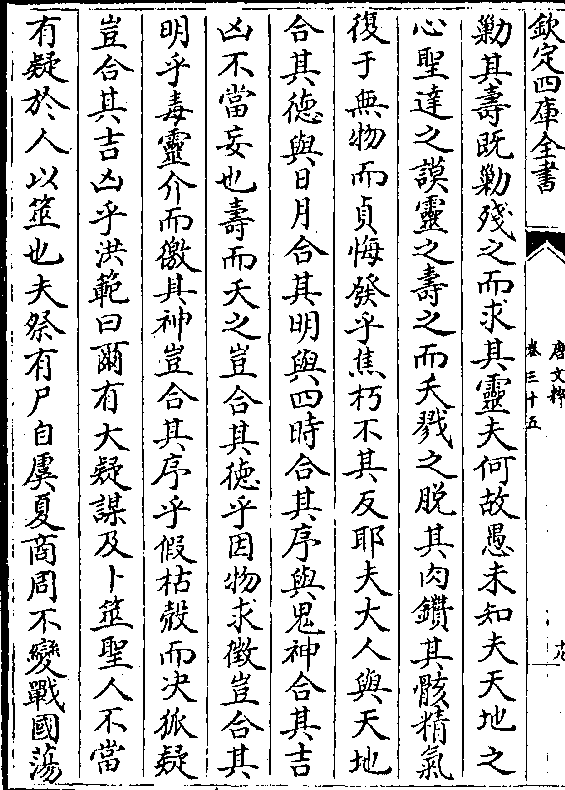 欽定四庫全書
唐文粹
卷三十五
勦其壽既勦殘之而求其靈夫何故愚未知夫天地之
心聖達之謨靈之壽之而夭戮之脫其肉鑽其骸精氣
復于無物而貞悔發乎焦朽不其反耶夫大人與天地
合其德與日月合其明與四時合其序與鬼神合其吉
凶不當妄也壽而夭之豈合其德乎因物求徵豈合其
明乎毒靈介而徼其神豈合其序乎假枯殼而决狐疑
豈合其吉凶乎洪範曰爾有大疑謀及卜筮聖人不當
有疑於人以筮也夫祭有尸自虞夏商周不變戰國蕩